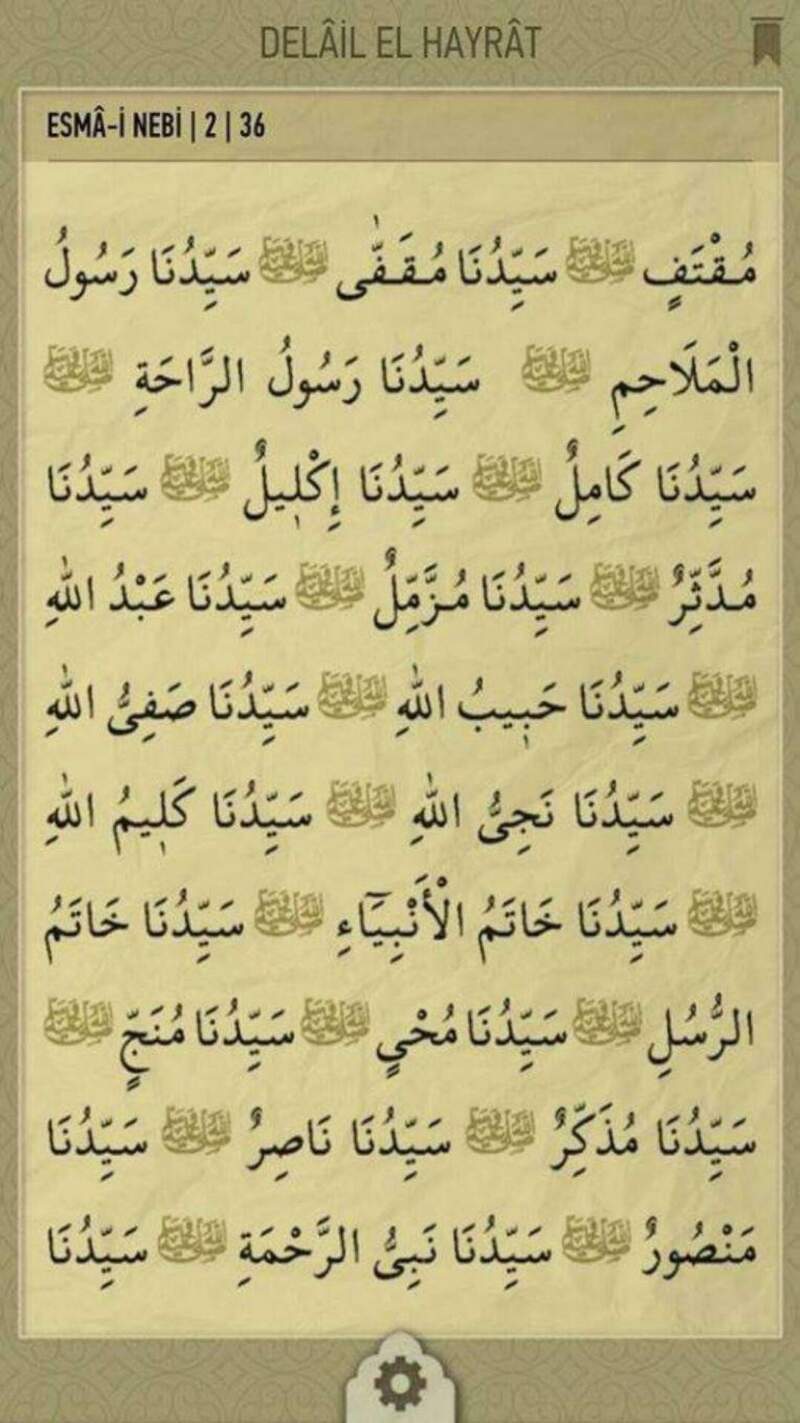 DELÂİL EL HAYRÂT
ESMÂ-İ NEBİ | 2 | 36
مُقْتَفٍ ﷺ سَيِّدُنَا مُقَفّٰى ﷺ سَيِّدُنَا رَسُولُ
الْمَلَاحِمِ ﷺ سَيِّدُنَا رَسُولُ الرَّاحَةِ ﷺ
سَيِّدُنَا كَامِلٌ ﷺ سَيِّدُنَا إِكْلِيلٌ ﷺ سَيِّدُنَا
مُدَّثِّرٌ ﷺ سَيِّدُنَا مُزَّمِّلٌ ﷺ سَيِّدُنَا عَبْدُ اللّٰهِ
ﷺ سَيِّدُنَا حَبِيبُ اللّٰهِ ﷺ سَيِّدُنَا صَفِىُّ اللّٰهِ
ﷺ سَيِّدُنَا نَجِىُّ اللّٰهِ ﷺ سَيِّدُنَا كَلِيمُ اللّٰهِ
ﷺ سَيِّدُنَا خَاتَمُ الْأَنْبِيَٓاءِ ﷺ سَيِّدُنَا خَاتَمُ
الرُّسُلِ ﷺ سَيِّدُنَا مُحْىٍ ﷺ سَيِّدُنَا مُنَجٍّ ﷺ
سَيِّدُنَا مُذَكِّرٌ ﷺ سَيِّدُنَا نَاصِرٌ ﷺ سَيِّدُنَا
مَنْصُورٌ ﷺ سَيِّدُنَا نَبِىُّ الرَّحْمَةِ ﷺ سَيِّدُنَا